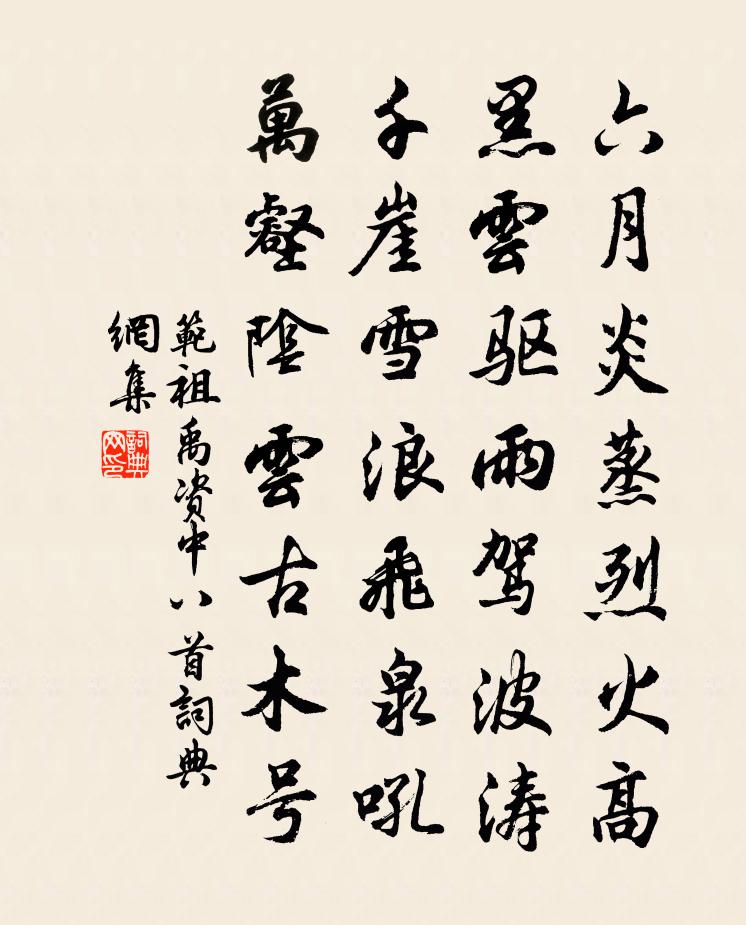 六月炎蒸烈火高
黑雲驱雨驾波涛
千崖雪浪飛泉吼
萬壑陰雲古木号
範祖禹资中八首詞典
網集
詞典
网印